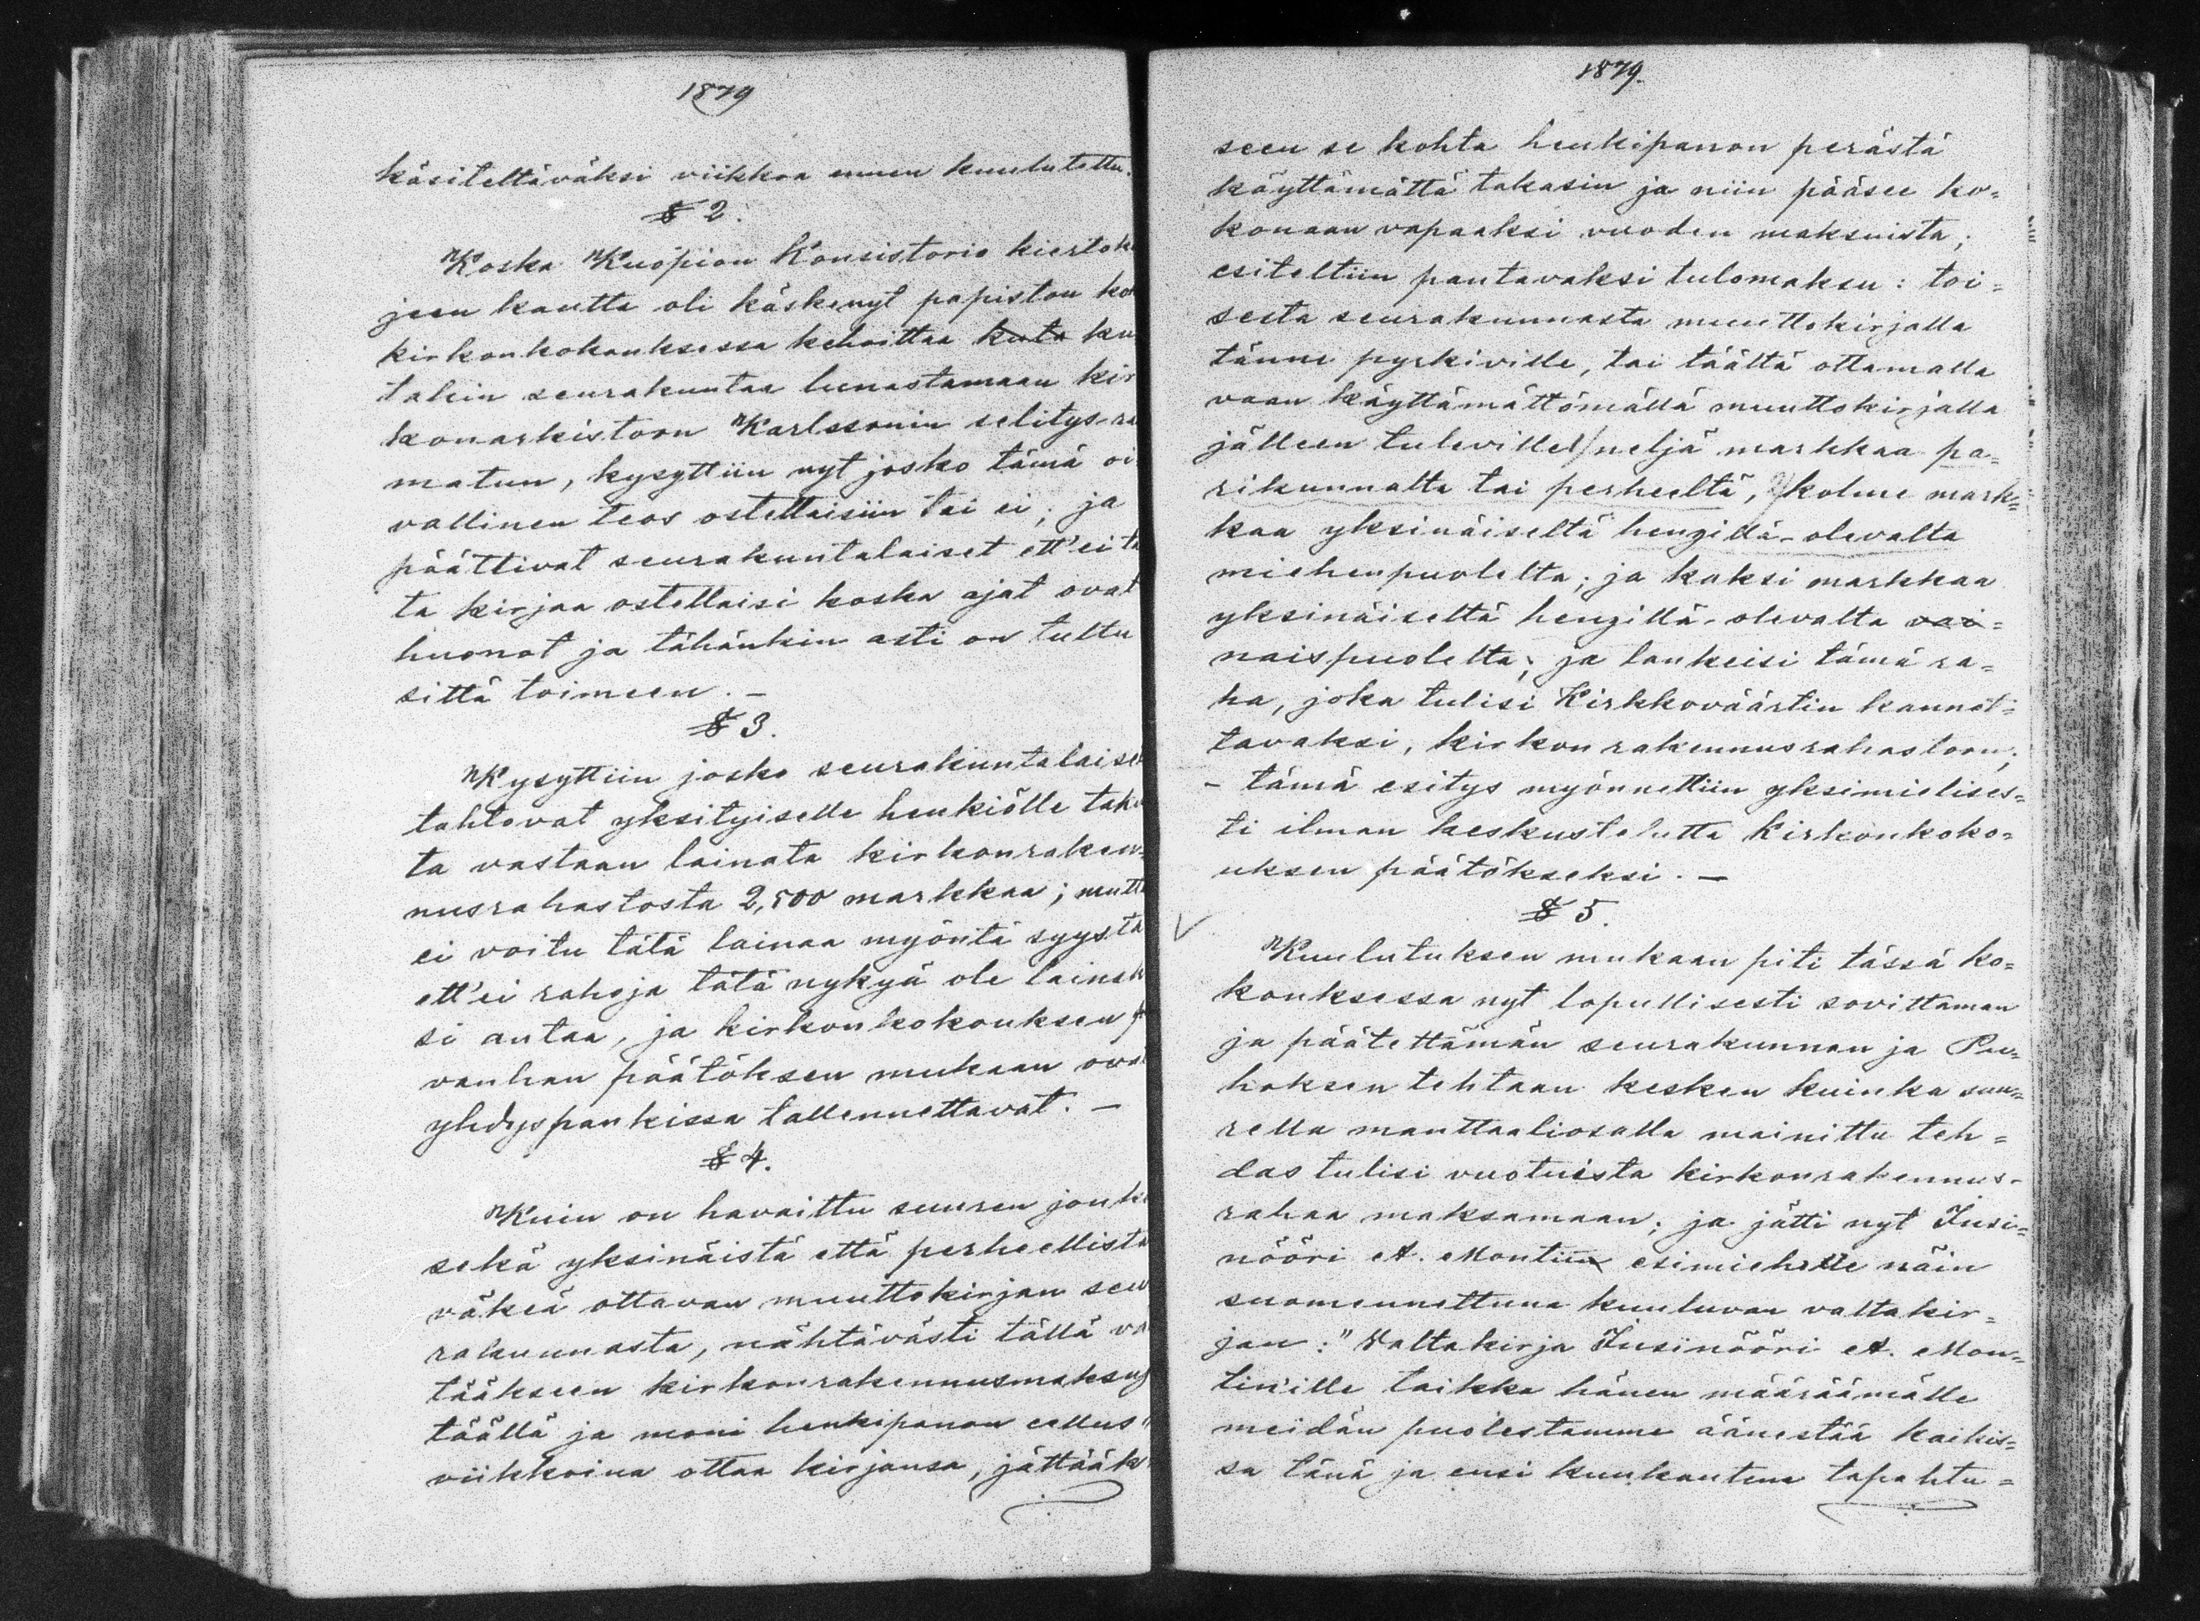 1879
käsiteltäväksi viikkoa ennen kuulutettu.
§ 2.
Koska Kuopion Konsistorio kiertok
jeen kautta oli käskenyt papiston ko
kirkonkokouksessa kehoittaa kuta ku
takin seurakuntaa lunastamaan kir
konarkistoon Karlssonin selitys-ra
matun, kysyttiin nyt josko tämä oi
vallinen teos ostettaisiin tai ei; ja
päättivat seurakuntalaiset ett'ei tä
ta kirjaa ostettaisi koska ajat ovat
huonot ja tähänkin asti on tultu
sittä toimeen. —
§ 3.
Kysyttiin josko seurakuntalaise
tahtovat yksityiselle henkiölle taku
ta vastaan lainata kirkonraken-
nusrahastosta 2,500 markkaa; mutta
ei voitu tätä lainaa myöntä syystä
ett'ei rahoja tätä nykyä ole lainak
si antaa, ja kirkonkokouksen
vanhan päätöksen mukaan ovat
yhdyspankissa tallennettavat. —
§ 4.
Kuin on havaittu suuren jouk
sekä yksinäistä että perheellistä
väkeä ottavan muuttokirjan seu
rakunnasta, nähtävästi tällä vä
tääkseen kirkonrakennusmaksuj
täällä ja moni henkipanon eellus
viikkoina ottaa kirjansa, jättääk
1879.
seen se kohta henkipanon perästä
käyttämättä takasin ja niin pääsee ko=
konaan vapaaksi vuoden maksuista;
esiteltiin pantavaksi tulomaksu: toi=
sesta seurakunnasta muuttokirjalla
tänne pyrkiville, tai täältä ottamalla
vaan käyttämättömällä muuttokirjalla
jälleen tuleville 1/ neljä markkaa pa=
rikunnalta tai perheeltä, 2/ kolme mark=
kaa yksinäiseltä hengillä-olevalta
miehenpuolelta; ja kaksi markkaa
yksinäiseltä hengillä-olevalta vai=
naispuolelta; ja lankeisi tämä ra=
ha, joka tulisi Kirkkoväärtin kannet=
tavaksi, kirkon rakennusrahastoon;
- tämä esitys myönnettiin yksimielises=
ti ilman keskustelutta Kirkonkoko=
uksen päätökseksi. —
§ 5.
Kuulutuksen mukaan piti tässä ko=
kouksessa nyt lopullisesti sovittaman
ja päätettämän seurakunnan ja Pu=
hoksen tehtaan kesken kuinka suu=
rella manttaaliosalla mainittu teh=
das tulisi vuotuista kirkonrakennus-
rahaa maksamaan; ja jätti nyt Insi=
nööri A. Montin esimiehelle näin
suomennettuna kuuluvan valtakir=
jan: "Valtakirja Insinööri A. Mon=
tin'ille taikka hänen määräämälle
meidän puolestamme äänestää kaikis=
sa tänä ja ensi kuukautena tapahtu=